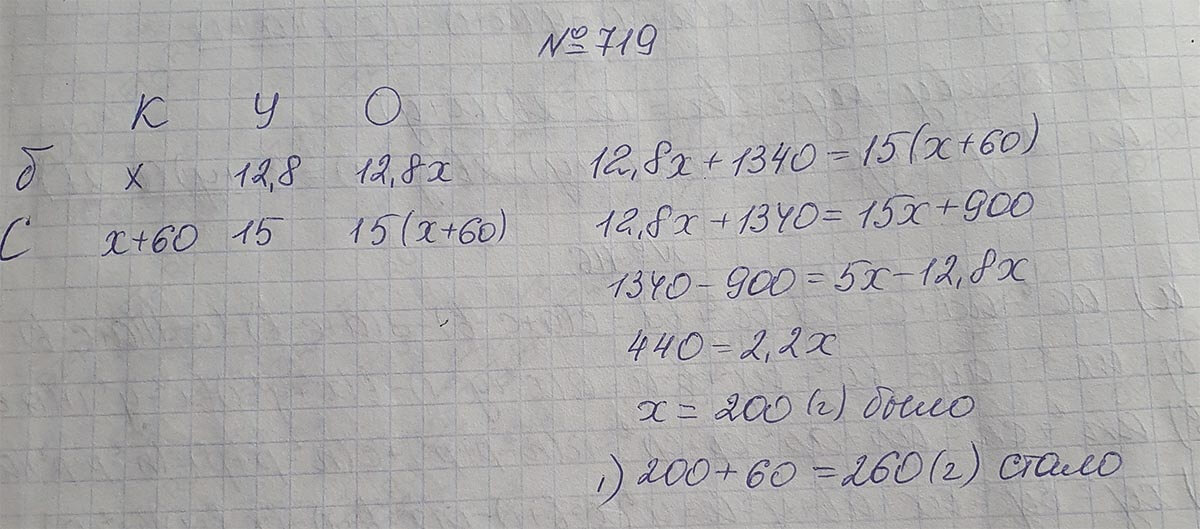 №719
К У О
б х 12,8 12,8х
С х+60 15 15(х+60)
12,8х+1340=15(х+60)
12,8х+1340=15х+900
1340-900=5х-12,8х
440=2,2х
х=200(г) было
1) 200+60=260(г) стало